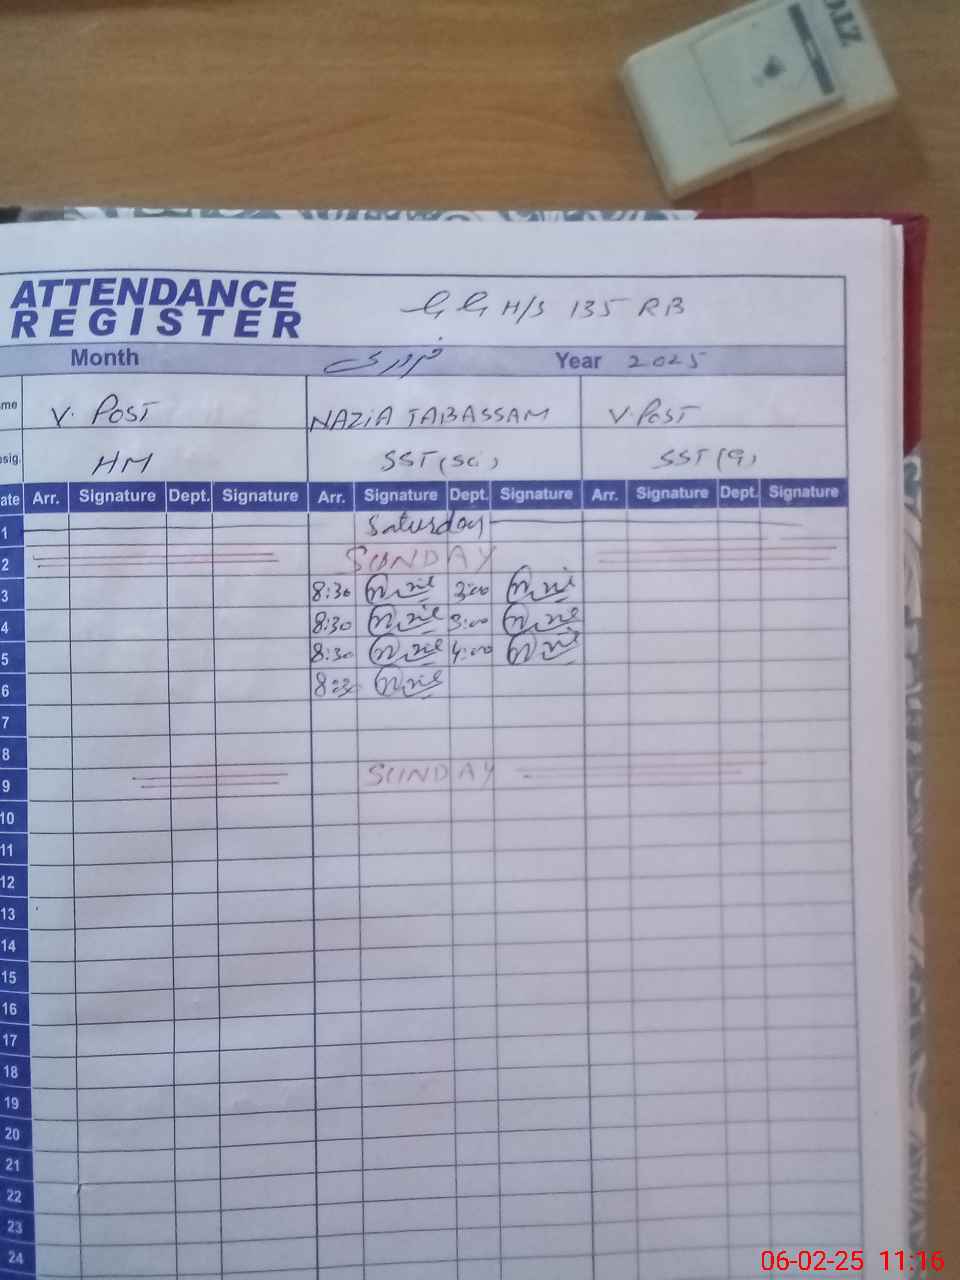 ATTENDANCE
REGISTER
G G H/S 135 RB
Month فروری Year 2025
me V. POST NAZIA TABASSAM V. POST
sig. HM SST (Sc) SST (G)
ate Arr. Signature Dept. Signature Arr. Signature Dept. Signature Arr. Signature Dept. Signature
1 Saturday
2 SUNDAY
3 8:30 3:00
4 8:30 3:00
5 8:30 4:00
6 8:30
7
8
9 SUNDAY
10
11
12
13
14
15
16
17
18
19
20
21
22
23
24
06-02-25 11:16